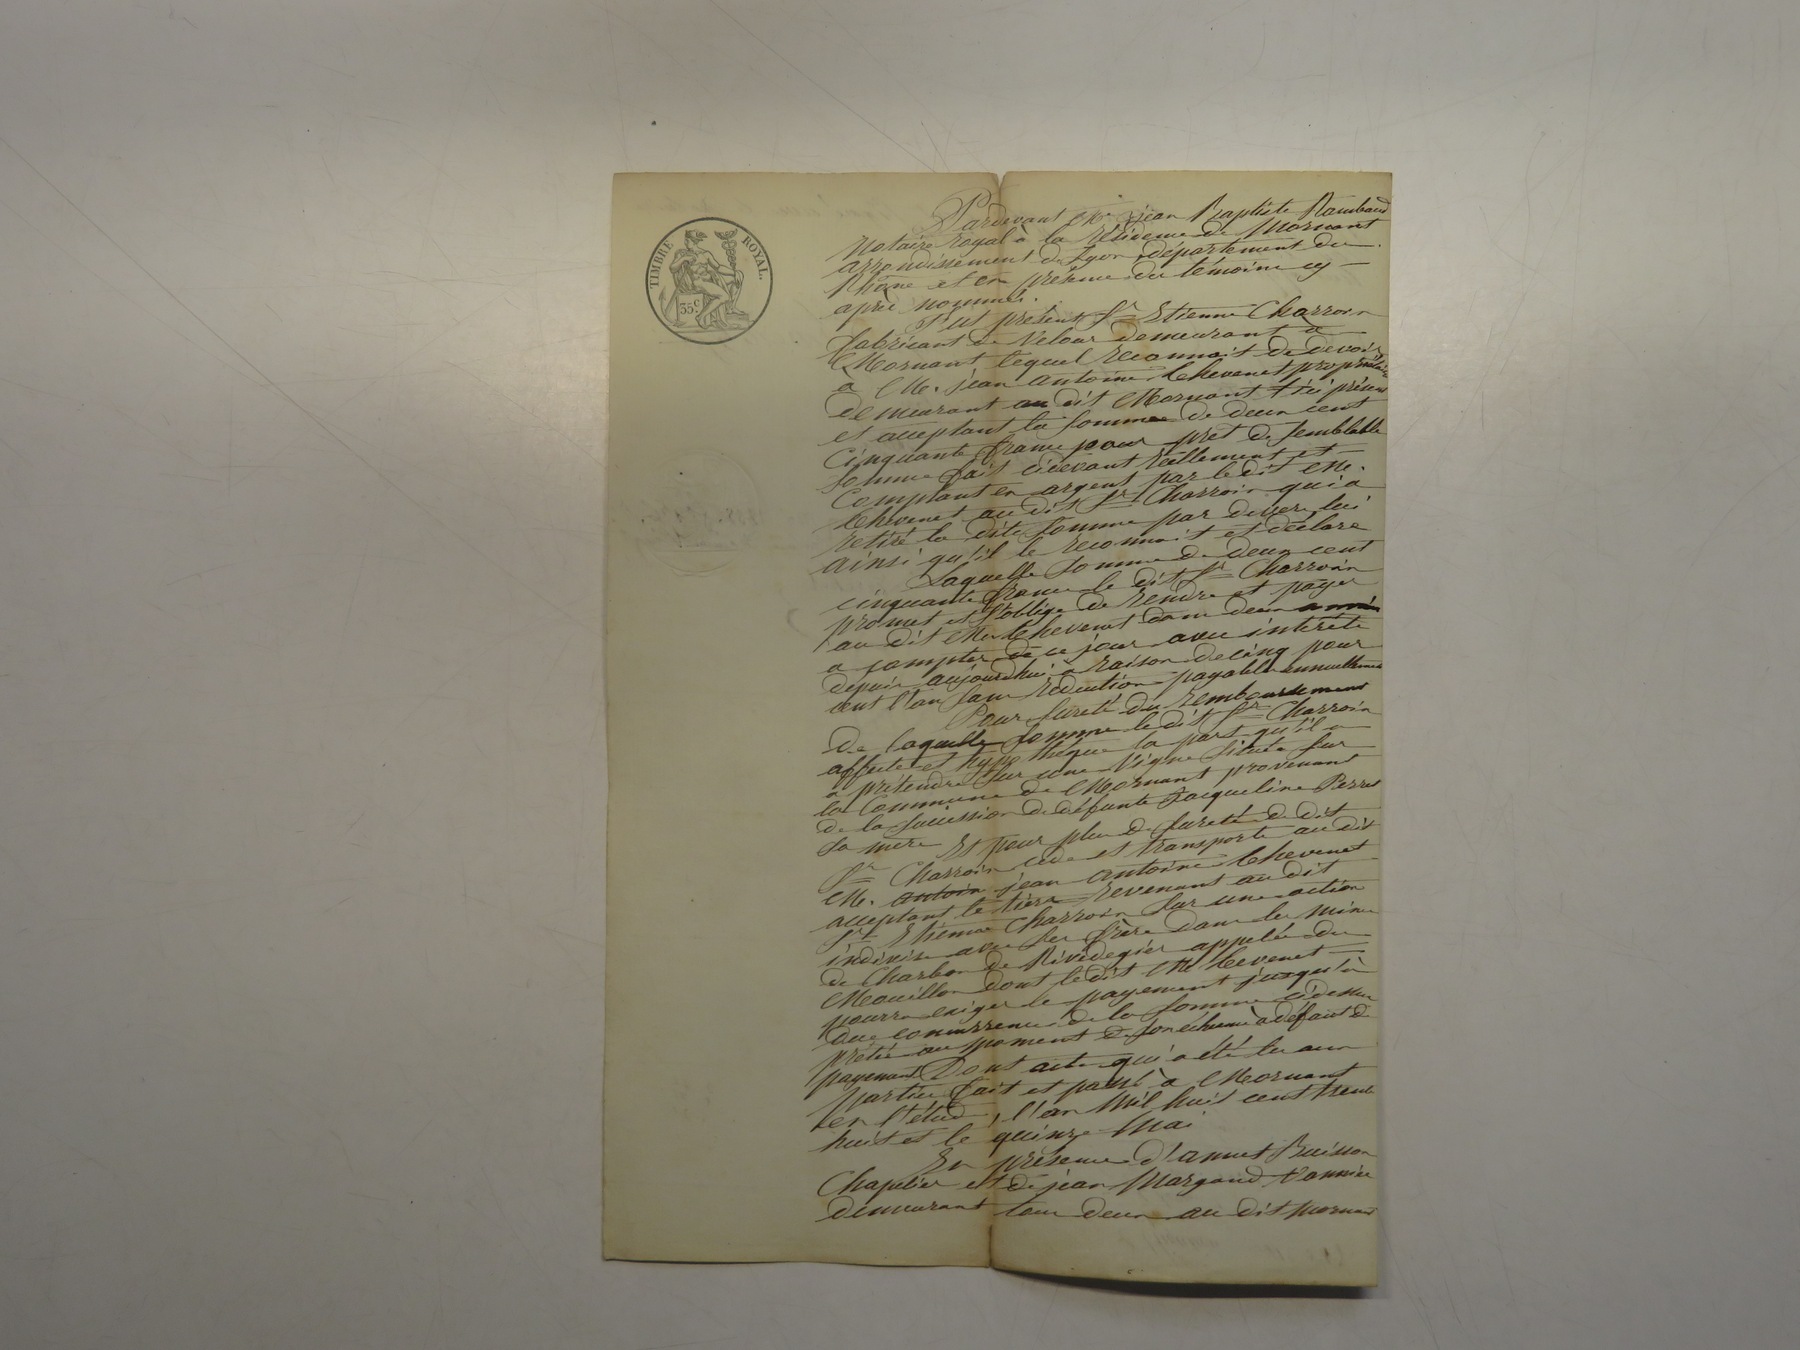 TIMBRE ROYAL.
35 c.
Pardevant Me jean Baptiste Rambaud
Notaire royal à la résidence de Mornant
arrondissement de Lyon département du
Rhône et en présence des témoins cy
après nommés.
S'est présent Sr Etienne Charroin
fabricant de Velour demeurant à
Mornant lequel reconnait de devoir
a M. jean antoine Chevenet propriétaire
demeurant au dit Mornant ici présent
et acceptant la somme de deux cent
cinquante francs pour prêt de semblable
somme fait cidevant réellement et
comptant en argent par le dit M.
Chevenet au dit Sr Charroin qui a
retiré la dite somme par devers lui
ainsi qu'il le reconnait et déclare
Laquelle somme de deux cent
cinquante francs le dit Sr Charroin
promet et s'oblige de rendre et payer
au dit M. Chevenet dans deux
a compter de ce jour avec intérêts
depuis aujourdhui a raison de cinq pour
cent l'an sans réduction payable annuellement
Pour sureté du remboursement
de laquelle somme le dit Sr Charroin
affecte et hypothèque la part qu'il a
a prétendre sur une vigne située sur
la Commune de Mornant provenant
de la succession de défunte Jacqueline Perret
sa mère Et pour plus de sureté le dit
Sr Charroin cède et transporte au dit
M. antoin jean antoine Chevenet
acceptant le tiers revenant au dit
Sr Etienne Charroin sur une action
indivise avec ses frères dans les mines
de Charbon de Rivedegier appelée du
Mouillon dont le dit M. Chevenet
pourra exiger le payement jusqu'à
due concurrence de la somme cidessus
prêtée au moment de son échéance à défaut de
payement Dont acte qui a été lu aux
parties fait et passé à Mornant
en l'étude, l'an Mil huit cent trente
huit et le quinze Mai
En présence d'annet Buisson
Chapelier et de jean Margaud Vannier
demeurant tous deux au dit Mornant